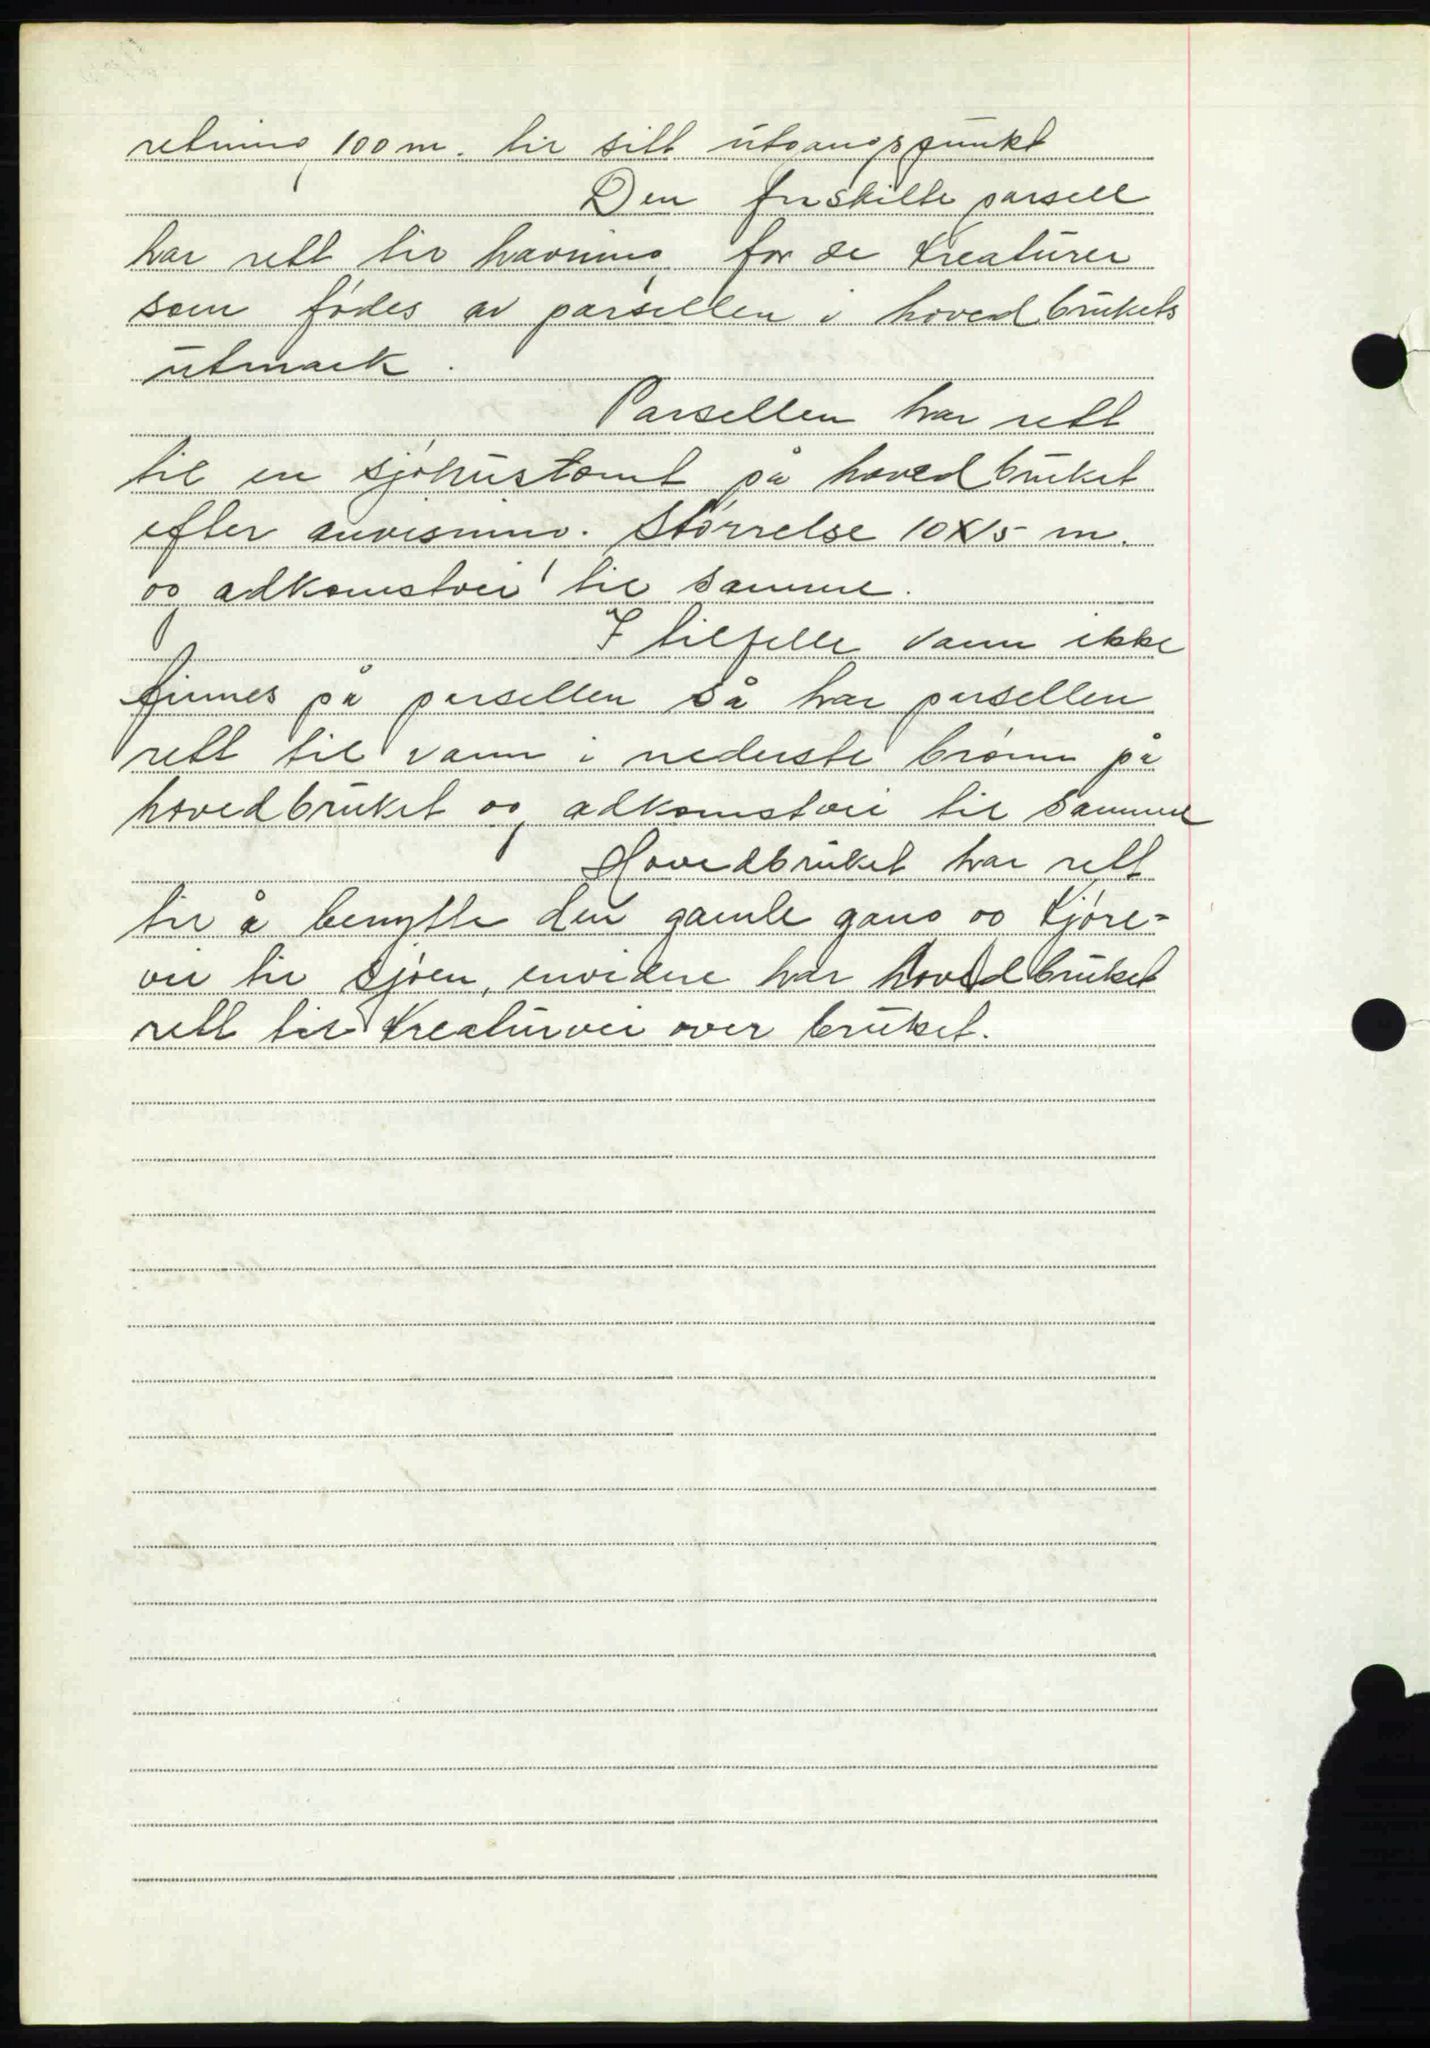 retning 100 m. til sitt utgangspunkt
Den fraskilte parsell
har rett til havning for de kreaturer
som fødes av parsellen i hovedbrukets
utmark.
Parsellen har rett
til en sjøhustomt på hovedbruket
efter anvisning. Størrelse 10x15 m.
og adkomstvei til samme.
I tilfelle vann ikke
finnes på parsellen så har parsellen
rett til vann i nederste brønn på
hovedbruket og adkomstvei til samme
Hovedbruket har rett
til å benytte den gamle gang og kjøre=
vei til sjøen, envidere har hovedbruket
rett til kreaturvei over bruket.